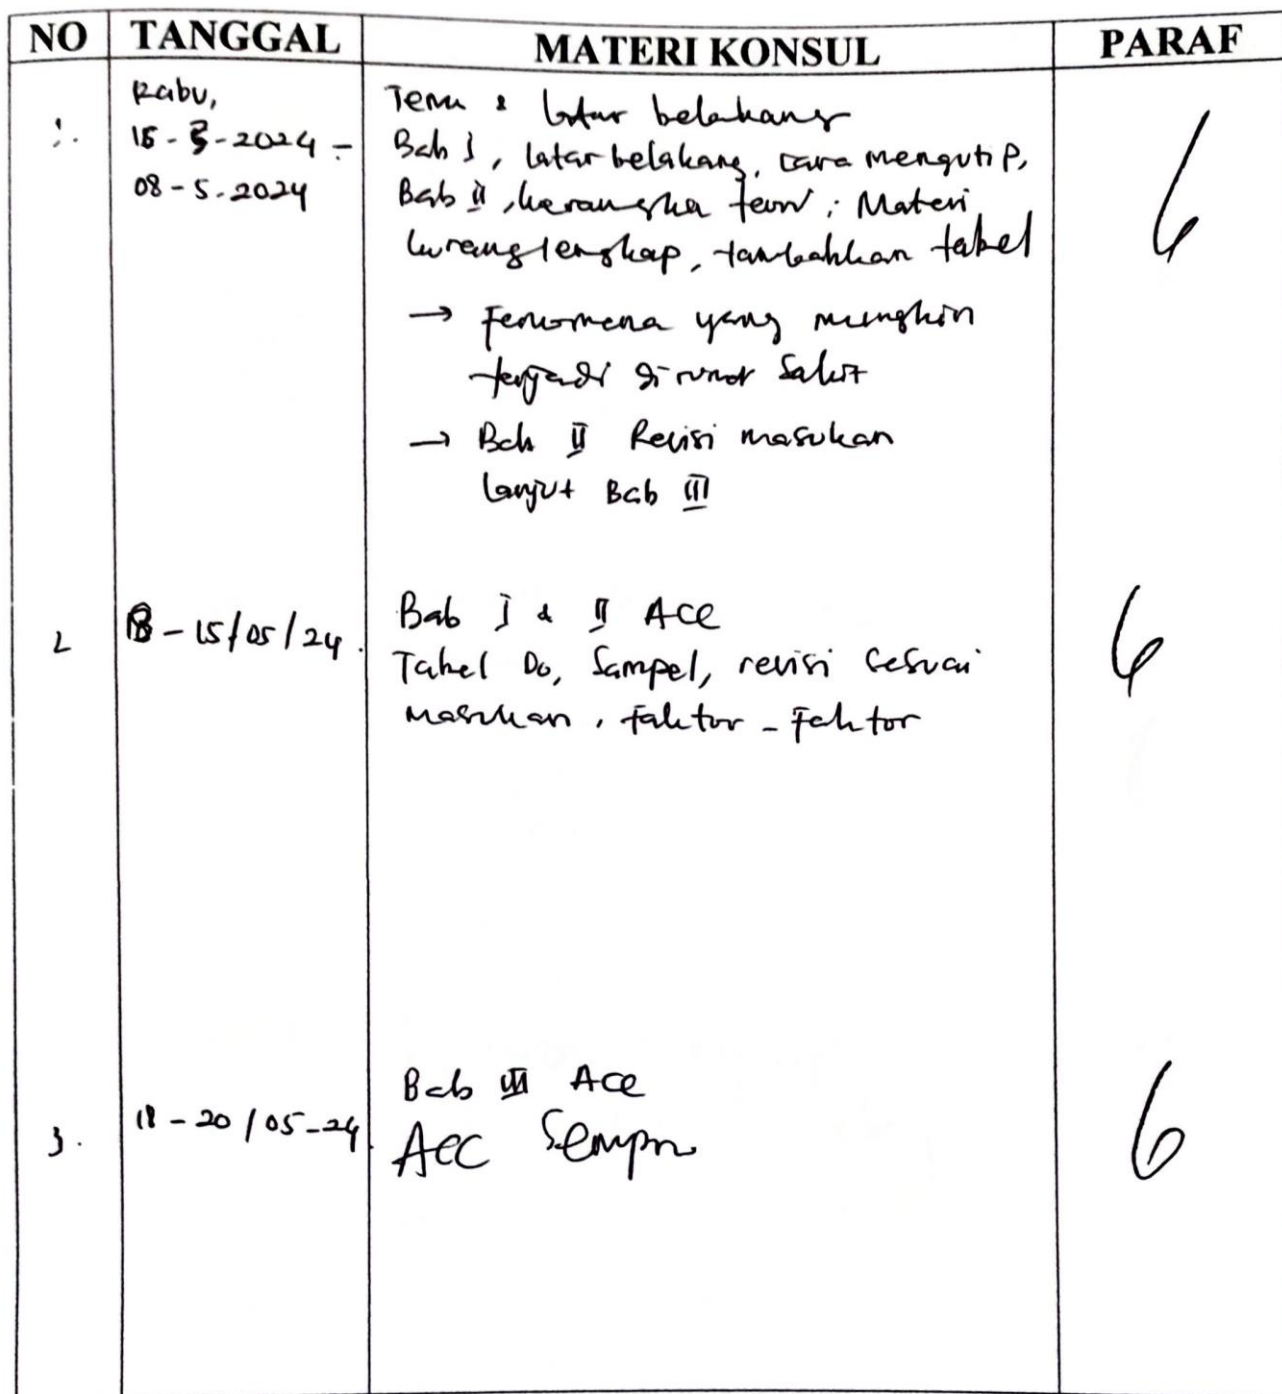 NO TANGGAL MATERI KONSUL PARAF
1. Rabu,
15-3-2024 -
08-5-2024
Tema & latar belakang
Bab I, latar belakang, cara mengutip,
Bab II, kerangka teori; Materi
kurang lengkap, tambahkan tabel
→ Fenomena yang mungkin
terjadi di rumah Sakit
→ Bab II Revisi masukan
lanjut Bab III
2 - 15/05/24.
Bab I & II Acc
Tabel Do, Sampel, revisi sesuai
masukan, faktor - faktor
3. 18 - 20/05-24
Bab III Acc
Acc Sempro